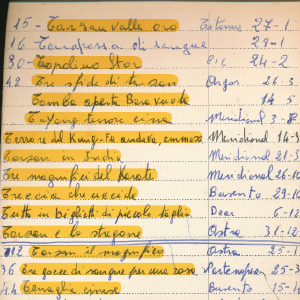 15 - Tarzan valle oro Titanus 27-1
16 - Tenaglia di sangue 29-1
30 - Topolino Star Cic 24-2
42 Tre sfide di tarzan Angor 26-3
Tomba aperta Bara vuota 14-5
T-Yang terrore cina Meridional 3-8
Terrore del Kung-Fu Meridional 14-9
Tarzan in India Meridional 21-9
Tre magnifici del Karate Meridional 26-10
Treccia che uccide Buxento 29-10
Tutto in biglietti di piccolo taglio Dear 6-12
Tarzan e lo stregone Ostra 31-12
12 Tarzan il magnifico Ostra 25-1
36 Tre gocce di sangue per una rosa Partenopea 25-3
44 Tenaglia cinese Buxento 15-4